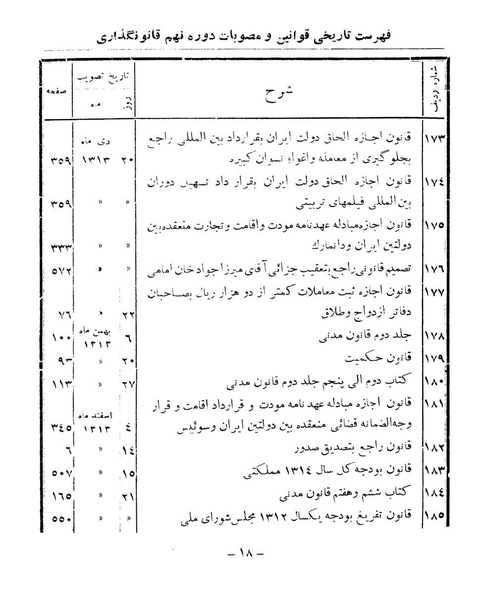 فهرست تاریخی قوانین و مصوبات دوره نهم قانونگذاری
شماره ردیف شرح تاریخ تصویب صفحه
روز ماه
۱۷۳ قانون اجازه الحاق دولت ایران بقرارداد بین المللی راجع دی ماه
بجلوگیری از معامله واغواء نسوان کبیره ۲۰ ۱۳۱۳ ۳۵۹
۱۷۴ قانون اجازه الحاق دولت ایران بقرار داد تسهیل دوران
بین‌المللی فیلمهای تربیتی » » ۳۵۹
۱۷۵ قانون اجازه مبادله عهدنامه مودت واقامت و تجارت منعقده بین
دولتین ایران ودانمارك » » ۳۳۳
۱۷۶ تصمیم قانونی راجع بتعقیب جزائی آقای میرزا جواد خان امامی » » ۵۷۲
۱۷۷ قانون اجازه ثبت معاملات کمتر از دو هزار ریال بصاحبان
دفاتر ازدواج وطلاق ۲۲ » ۷۶
۱۷۸ جلد دوم قانون مدنی ۶ بهمن ماه ۱۳۱۳ ۱۰۰
۱۷۹ قانون حکمیت ۲۰ » ۹۳
۱۸۰ کتاب دوم الی پنجم جلد دوم قانون مدنی ۲۷ » ۱۱۳
۱۸۱ قانون اجازه مبادله عهدنامه مودت و قرارداد اقامت و قرار اسفند ماه
وجه‌الضمانه قضائی منعقده بین دولتین ایران وسوئیس ۴ ۱۳۱۳ ۳۴۵
۱۸۲ قانون راجع بتصدیق صدور ۱۴ » ۶
۱۸۳ قانون بودجه کل سال ۱۳۱۴ مملکتی ۱۵ » ۵۰۷
۱۸۴ کتاب ششم وهفتم قانون مدنی ۲۱ » ۱۶۵
۱۸۵ قانون تفریغ بودجه یکسال ۱۳۱۲ مجلس‌شورای ملی » » ۵۵۰
– ۱۸ –